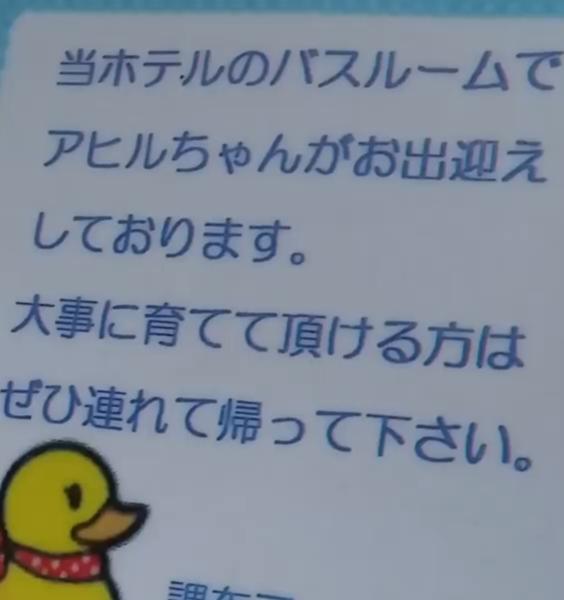 当ホテルのバスルームで
アヒルちゃんがお出迎え
しております。
大事に育てて頂ける方は
ぜひ連れて帰って下さい。